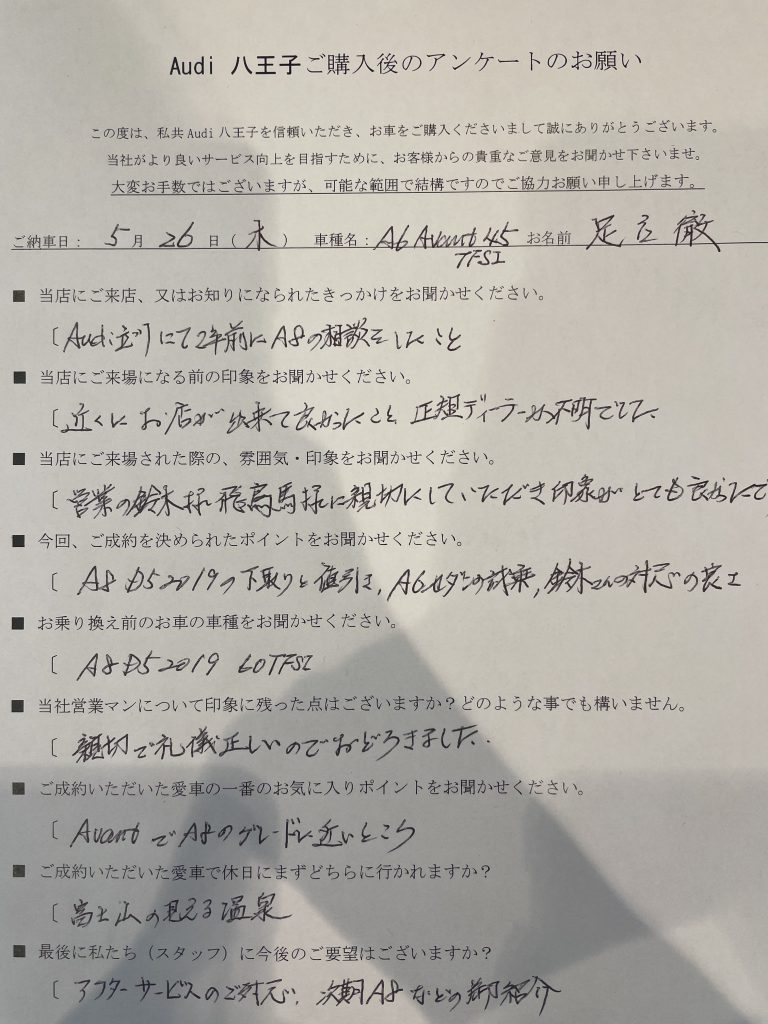 Audi 八王子ご購入後のアンケートのお願い
この度は、私共Audi八王子を信頼いただき、お車をご購入くださいまして誠にありがとうございます。
当社がより良いサービス向上を目指すために、お客様からの貴重なご意見をお聞かせ下さいませ。
大変お手数ではございますが、可能な範囲で結構ですのでご協力お願い申し上げます。
ご納車日: 5月 26日(木) 車種名:A6 Avant 45 TFSI お名前 足立 徹
■ 当店にご来店、又はお知りになられたきっかけをお聞かせください。
〔Audi立川にて2年前にA8の相談をしたこと
■ 当店にご来場になる前の印象をお聞かせください。
〔近くにお店が出来て良かったこと 正規ディーラーか不明でした、
■ 当店にご来場された際の、雰囲気・印象をお聞かせください。
〔営業の鈴木様 高馬様に親切にしていただき印象がとても良かったで
■ 今回、ご成約を決められたポイントをお聞かせください。
〔A8 D5 2019の下取りと値引き, A6セダンの試乗, 鈴木さんの対応の良さ
■ お乗り換え前のお車の車種をお聞かせください。
〔A8 D5 2019 60TFSI
■ 当社営業マンについて印象に残った点はございますか?どのような事でも構いません。
〔親切で礼儀正しいのでおどろきました.
■ ご成約いただいた愛車の一番のお気に入りポイントをお聞かせください。
〔AvantでA8のグレードに近いところ
■ ご成約いただいた愛車で休日にまずどちらに行かれますか?
〔富士山の見える温泉
■ 最後に私たち(スタッフ)に今後のご要望はございますか?
〔アフターサービスのご対応、次期A8などの御紹介